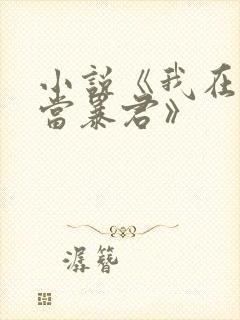 小说《我在
当暴君》
潺簪